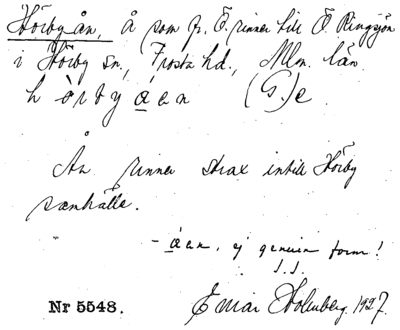 Hörbyån, Å som fr. Ö. rinner till Ö. Ringsjön
i Hörby sn., Frosta hd., Mlm. län
hörbyåen (G.)e
Ån rinner strax intill Hörby
samhälle.
- åen, ej genuin form!
I.I.
Nr 5548. Einar Holmberg. 1927.